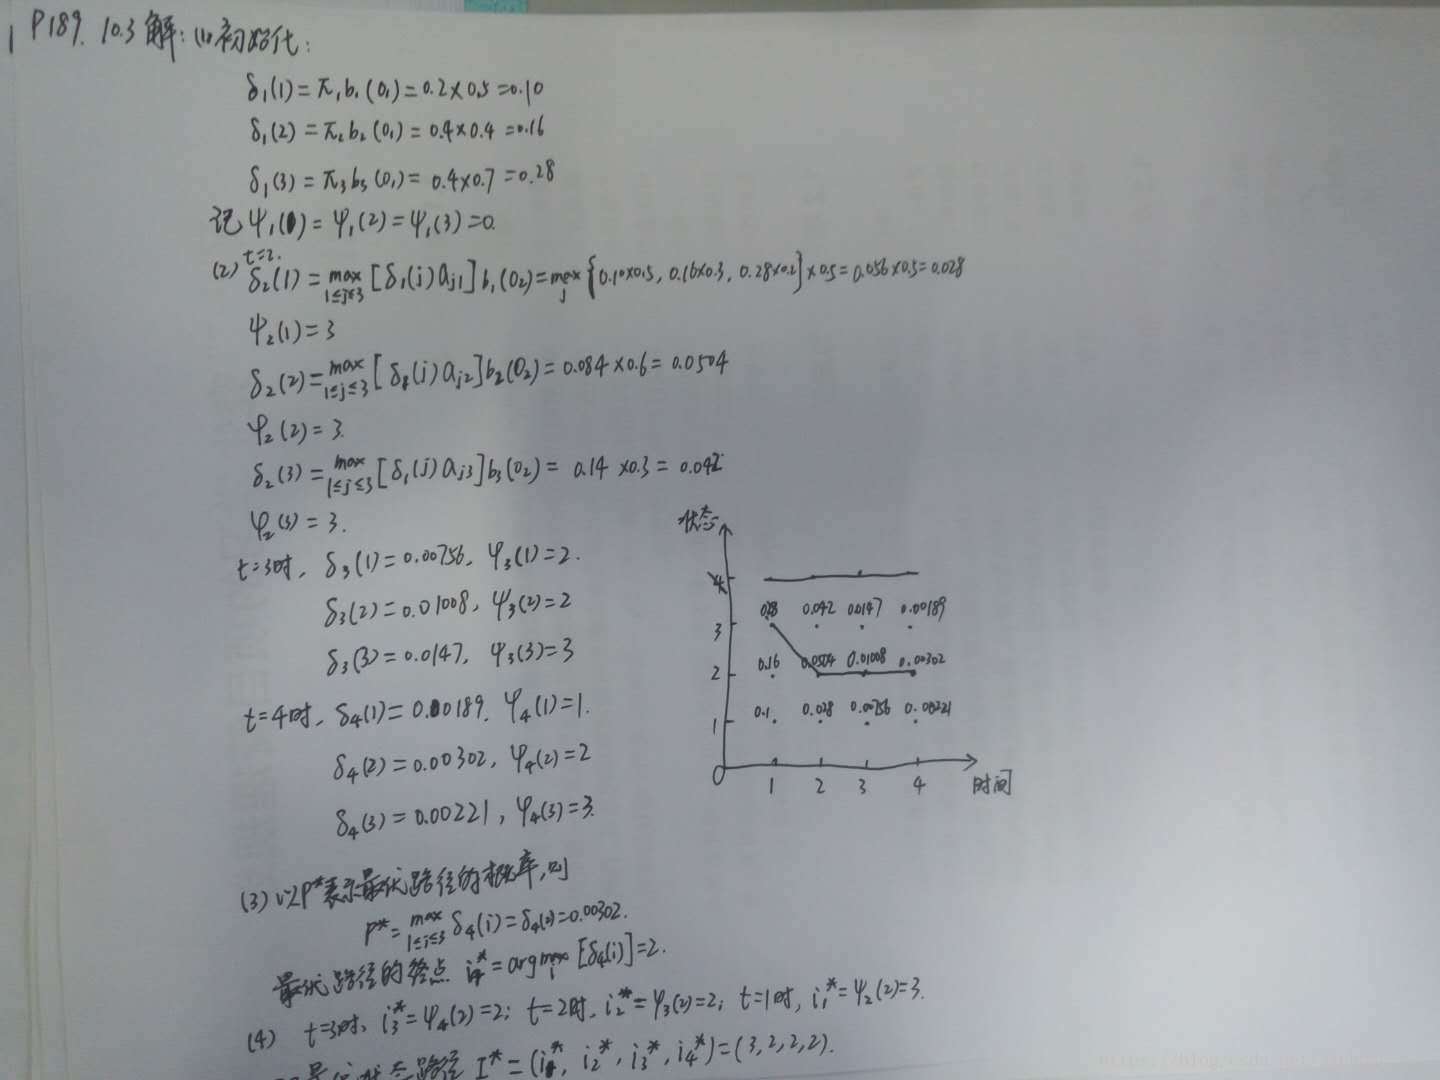 P189. 10.3 解: (1) 初始化:
δ₁(1) = π₁b₁(O₁) = 0.2×0.5 = 0.10
δ₁(2) = π₂b₂(O₁) = 0.4×0.4 = 0.16
δ₁(3) = π₃b₃(O₁) = 0.4×0.7 = 0.28
记 Ψ₁(1) = Ψ₁(2) = Ψ₁(3) = 0.
(2) t=2.
δ₂(1) = max 1≤j≤3 [δ₁(j) a_{j1}] b₁(O₂) = max j {0.10×0.5, 0.16×0.3, 0.28×0.2} × 0.5 = 0.056×0.5 = 0.028
Ψ₂(1) = 3
δ₂(2) = max 1≤j≤3 [δ₁(j) a_{j2}] b₂(O₂) = 0.084×0.6 = 0.0504
Ψ₂(2) = 3.
δ₂(3) = max 1≤j≤3 [δ₁(j) a_{j3}] b₃(O₂) = 0.14×0.3 = 0.042
Ψ₂(3) = 3.
t=3时, δ₃(1) = 0.00756, Ψ₃(1) = 2.
δ₃(2) = 0.01008, Ψ₃(2) = 2
δ₃(3) = 0.0147, Ψ₃(3) = 3
t=4时, δ₄(1) = 0.00189, Ψ₄(1) = 1.
δ₄(2) = 0.00302, Ψ₄(2) = 2
δ₄(3) = 0.00221, Ψ₄(3) = 3.
状态
4
0.28 0.042 0.0147 0.00189
3
0.16 0.0504 0.01008 0.00302
2
0.1 0.028 0.00756 0.00221
1
0 1 2 3 4 时间
(3) 以P*表示最优路径的概率,则
P* = max 1≤i≤3 δ₄(i) = δ₄(2) = 0.00302.
最优路径的终点 i₄* = arg max i [δ₄(i)] = 2.
(4) t=3时, i₃* = Ψ₄(2) = 2; t=2时, i₂* = Ψ₃(2) = 2; t=1时, i₁* = Ψ₂(2) = 3.
最优状态路径 I* = (i₁*, i₂*, i₃*, i₄*) = (3,2,2,2).